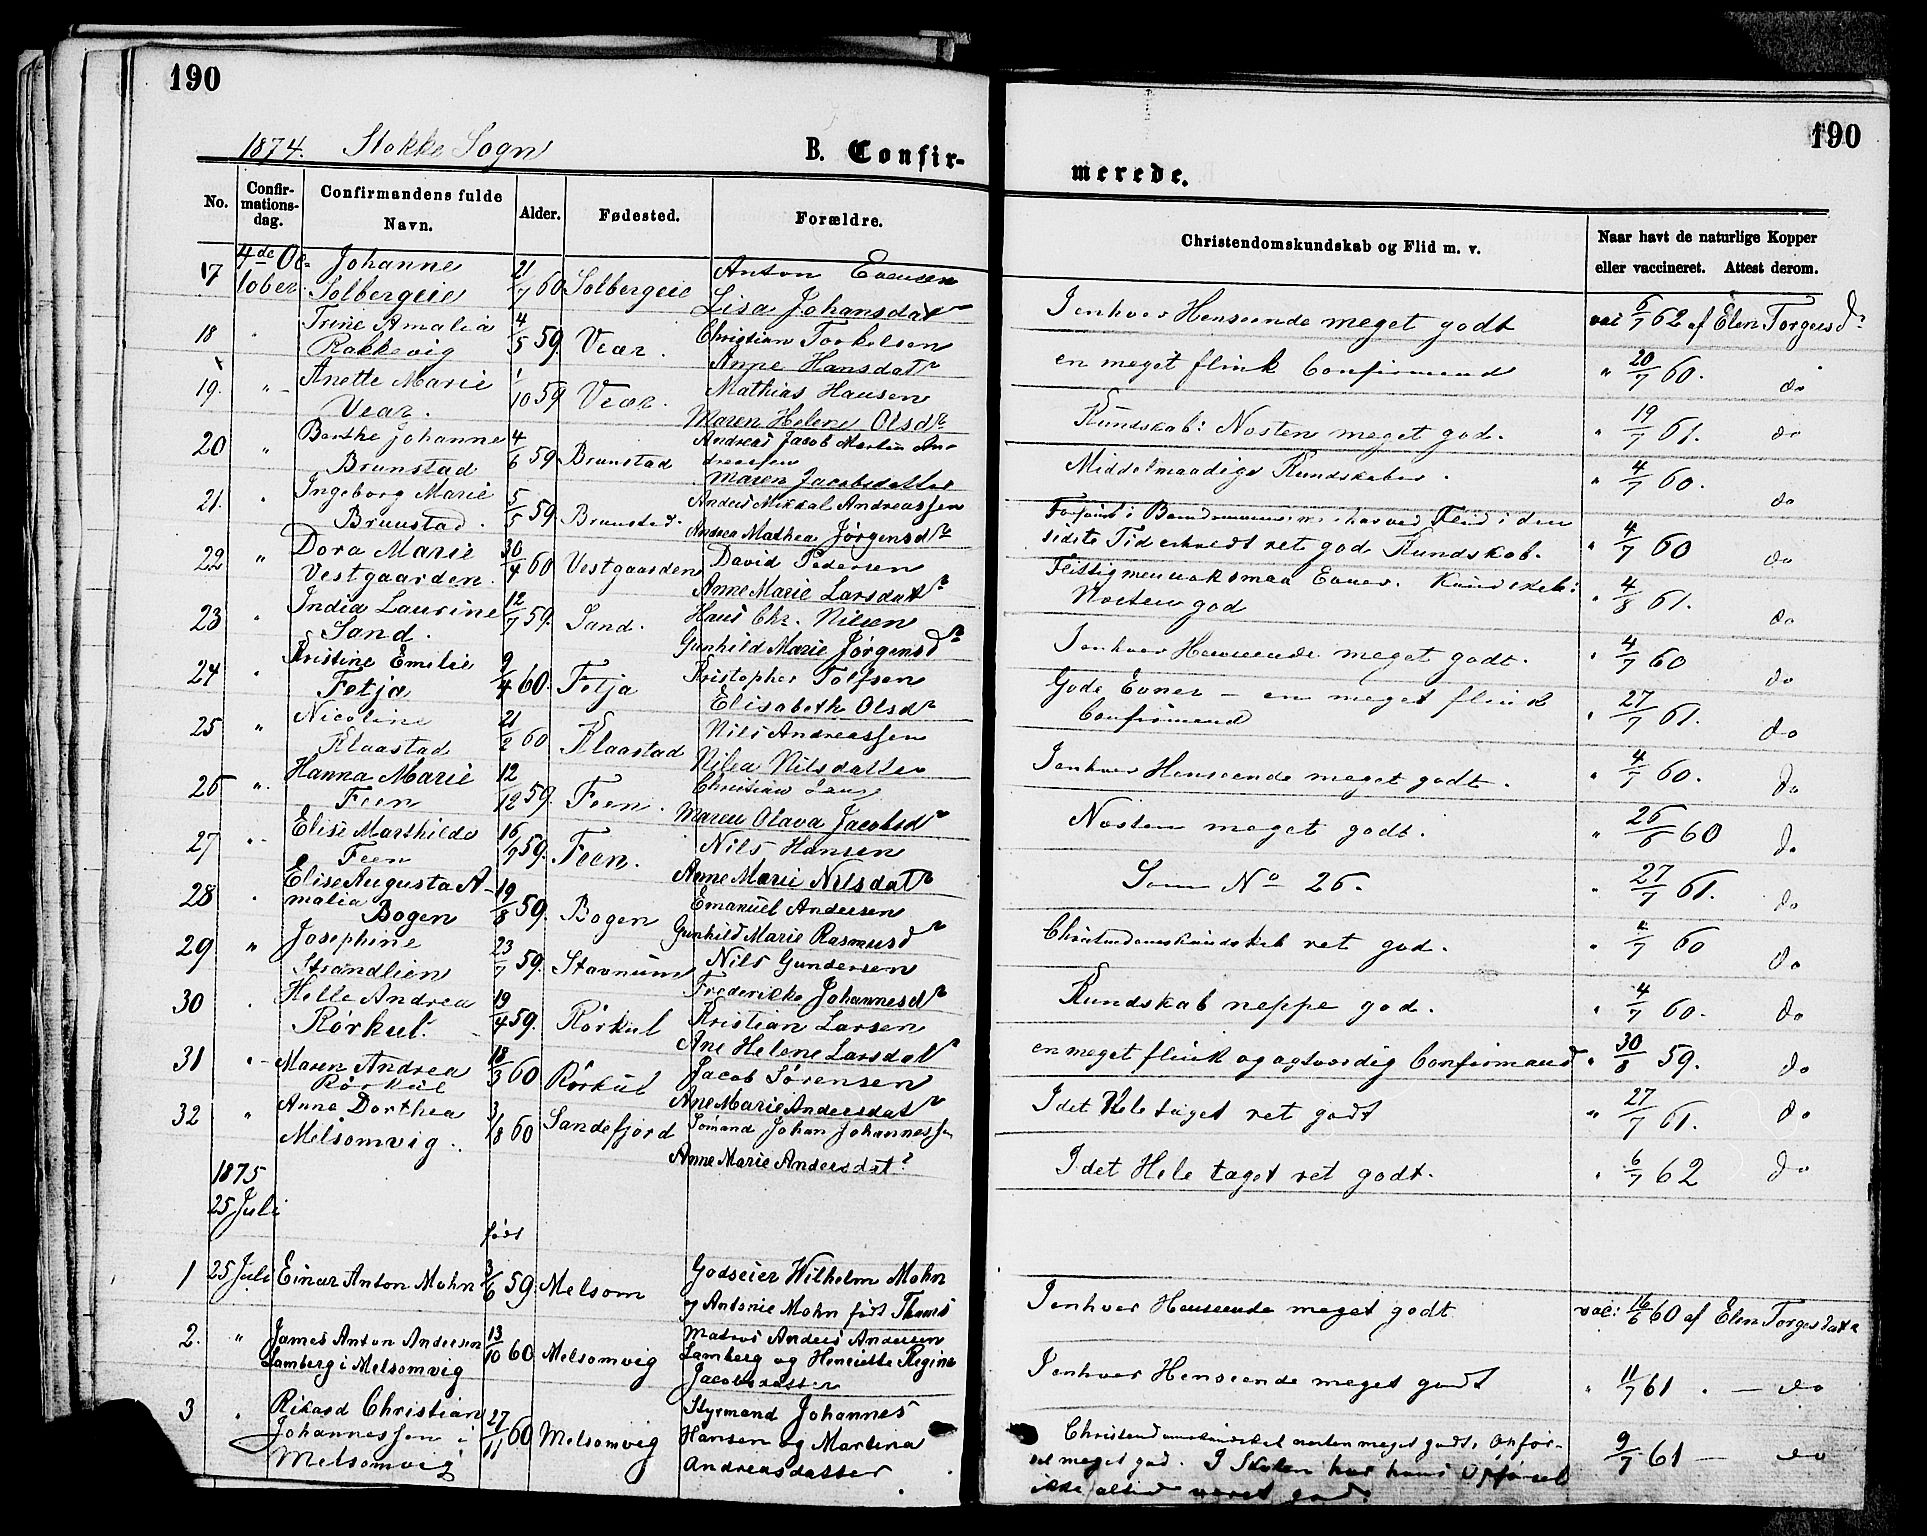 190
190
1874. Stokke Sogn
B. Confir-
merede.
No.
Confir-
mations-
dag.
Confirmandens fulde
Navn.
Alder.
Fødested.
Forældre.
Christendomskundskab og Flid m. v.
Naar havt de naturlige Kopper
eller vaccineret. Attest derom.
17 4de Oc- Johanne 21/7 60 Solbergeie Anton Evensen
tober Solbergeie Lisa Johansdatr
Ienhver Henseende meget godt vac 6/7 62 af Elen Torgersdr
18 " Trine Amalia 4/5 59. Vear. Christian Torkelsen
Rakkevig Anne Hansdatr
en meget flink Confirmand " 20/7 60. do
19. " Anette Marie 1/10 59 Vear. Mathias Hansen
Vear. Maren Helene Olsdr
Kundskab: Næsten meget god. " 19/7 61. do
20 " Berthe Johanne 4/6 59 Brunstad Andreas Jacob Martin An-
Brunstad dreassen
Maren Jacobsdatter
Middelmaadige Kundskaber. " 4/7 60. do
21. " Ingeborg Marie 5/5 59. Brunstad. Anders Mikkal Andreassen
Brunstad. Andrea Mathea Jørgensdtr
Forsømt i Barndommen har ved Flid i den
sidste Tid erhvedt ret god Kundskab. " 4/7 60 do
22 " Dora Marie 30/4 60 Vestgaarden David Pedersen
Vestgaarden. Anne Marie Larsdatr
Flittig men nok smaa Evner. Kundskab:
Næsten god " 4/8 61. do
23 " India Laurine 12/7 59. Sand. Hans Chr. Nilsen
Sand. Gunhild Marie Jørgensdr
Ienhver Henseende meget godt. " 4/7 60 do
24 " Kristine Emilie 9/4 60. Fetja Kristopher Tolfsen
Fetja Elisabeth Olsdr
Gode Evner – en meget flink
Confirmand " 27/7 61. do
25 " Nicoline 21/2 60 Klaastad Nils Andreassen
Klaastad Nilea Nilsdatter
Ienhver Henseende meget godt. " 4/7 60. do
26 " Hanna Marie 12/12 59. Feen. Christian
Feen Maren Olava Jacobsdr
Næsten meget godt. " 26/6 60 do
27 " Elise Marthilde 16/9 59. Feen. Nils Hansen
Feen Anne Marie Nilsdatr
Som No 26. " 27/7 61. do
28 " Elise Augusta A- 19/8 59. Bogen Emanuel Andersen
malia Bogen Gunhild Marie Rasmusdr
Christendomskundskab ret god. " /7 60 do
29 " Josephine 23/7 59. Stavnum Nils Gundersen
Strandlien Frederikke Johannesdr
Kundskab neppe god. " 4/7 60. do
30 " Helle Andrea 19/4 59. Rørkul Kristian Larsen
Rørkul. Ane Helene Larsdatr
en meget flink og agtværdig Confirmand " 30/8 59. do
31 " Maren Andrea 18/3 60 Rørkul Jacob Sørensen
Rørkul Ane Marie Andersdatr
I det Hele taget ret godt " 27/7 61. do
32 " Anne Dorthea 3/8 60 Sandefjord Sømand Johan Johannessen
Melsomvig. Anne Marie Andersdatr
I det Hele taget ret godt. " 6/7 62 do
1875
25 Juli
født
1 25 Juli Einar Anton Mohn 3/6 59. Melsom Godseier Wilhelm Mohn
og Antonie Mohn født Thams
Ienhver Henseende meget godt vac: 16/6 60 af Elen Torgersdatr
2. " James Anton Andersen 13/10 60 Melsomvig Matros Anders Andersen
Lamberg i Melsomvig Lamberg og Henriette Regine
Jacobsdatter
Ienhver Henseende meget godt " 11/7 61 " — do
3 " Rikard Christian 27/11 60 Melsomvig Styrmand Johannes
Johannessen i Hansen og Martina
Melsomvig Andreasdatter
Christendomskundskab næsten meget godt. Opfør-
sel meget god. I Skolen har hans Opførsel
ikke altid været god. 9/7 61 — do